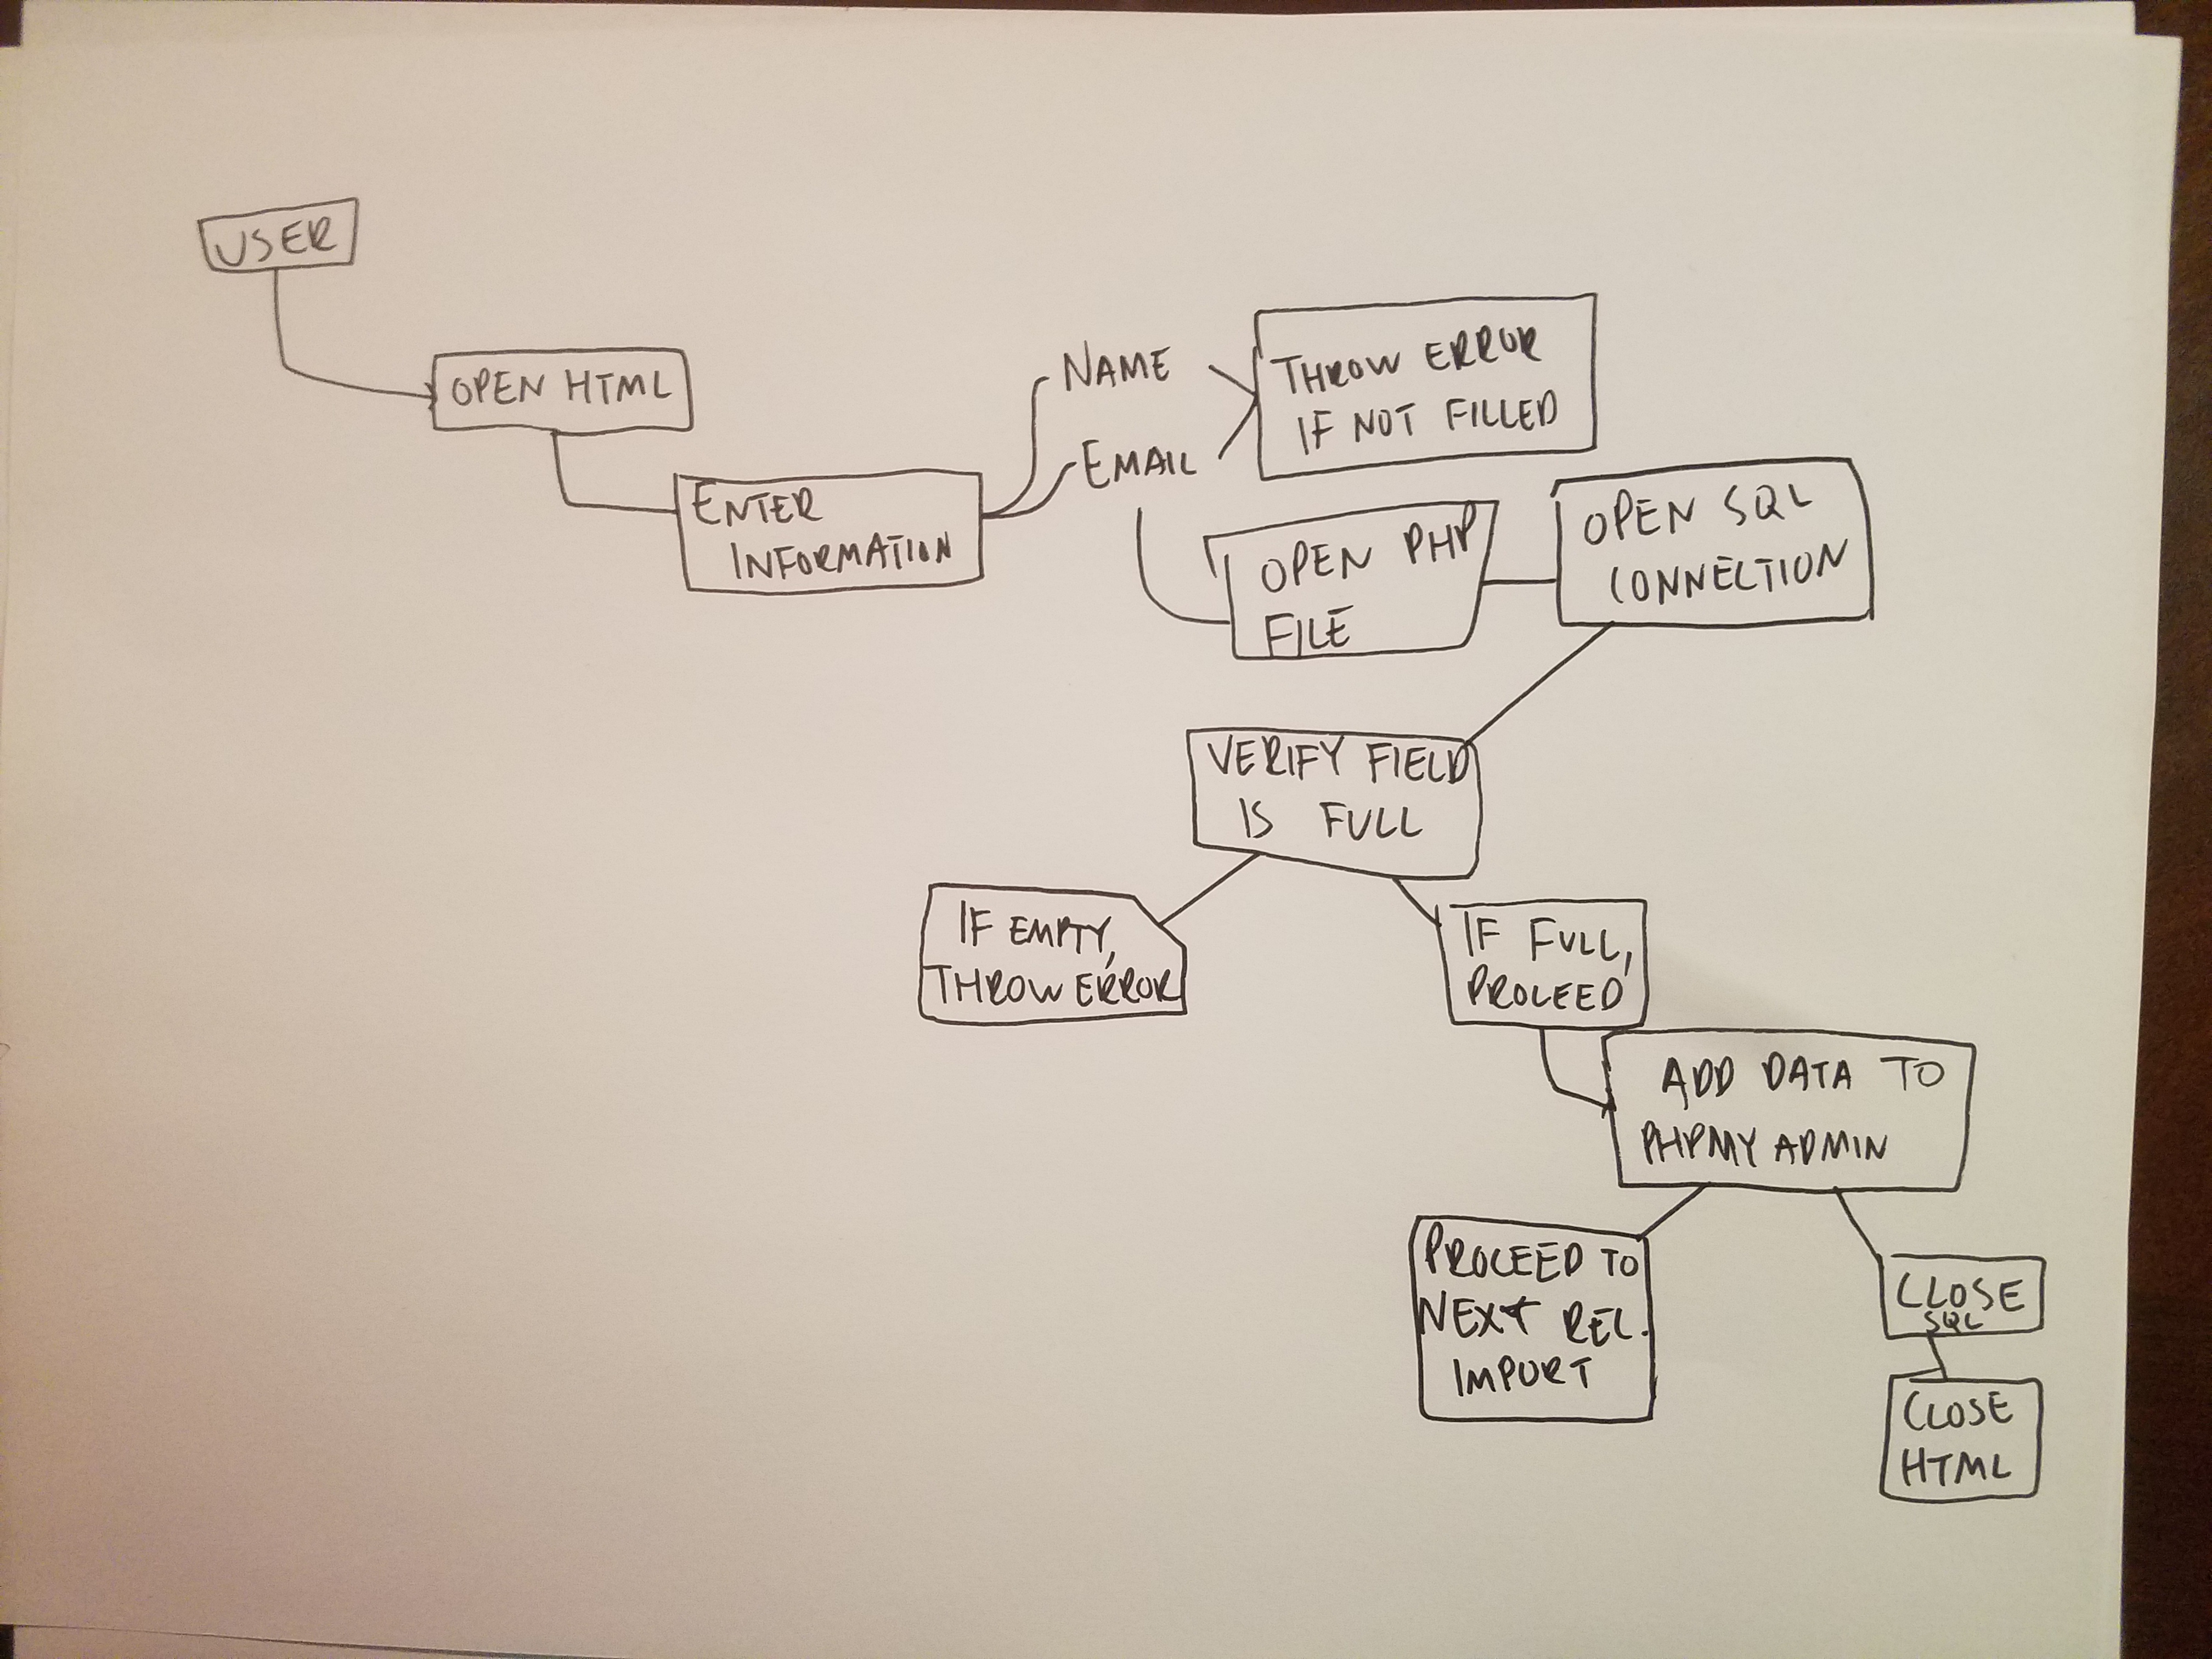 USER
OPEN HTML
ENTER
INFORMATION
NAME
EMAIL
THROW ERROR
IF NOT FILLED
OPEN PHP
FILE
OPEN SQL
CONNECTION
VERIFY FIELD
IS FULL
IF EMPTY,
THROW ERROR
IF FULL,
PROCEED
ADD DATA TO
PHPMYADMIN
PROCEED TO
NEXT REL.
IMPORT
CLOSE
SQL
CLOSE
HTML